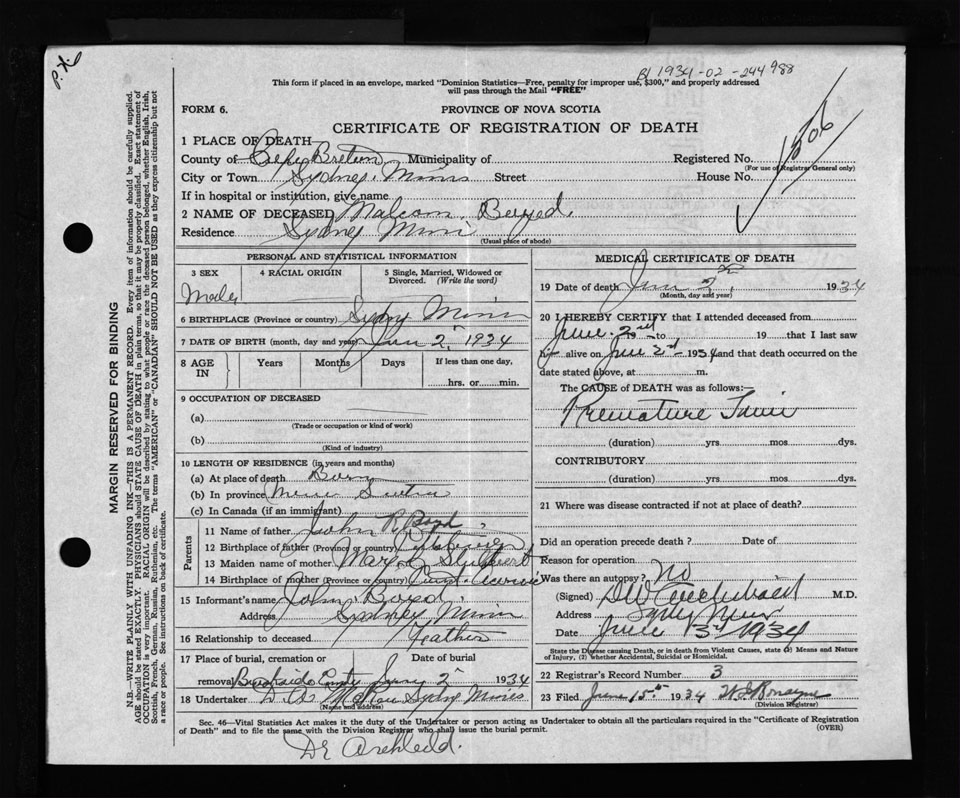 BJ 1934-02-244988
This form if placed in an envelope, marked "Dominion Statistics—Free, penalty for improper use, $300," and properly addressed
will pass through the Mail "FREE"
FORM 6.
PROVINCE OF NOVA SCOTIA
CERTIFICATE OF REGISTRATION OF DEATH
1 PLACE OF DEATH
County of Cape Breton Municipality of Registered No. 1506
(For use of Registrar General only)
City or Town Sydney Mines Street House No.
If in hospital or institution, give name
2 NAME OF DECEASED Malcom Boyed.
Residence Sydney Mines
(Usual place of abode)
PERSONAL AND STATISTICAL INFORMATION
3 SEX 4 RACIAL ORIGIN 5 Single, Married, Widowed or Divorced. (Write the word)
Male
6 BIRTHPLACE (Province or country) Sydney Mines
7 DATE OF BIRTH (month, day and year) 2, 1934
8 AGE IN Years Months Days If less than one day,
hrs. or min.
9 OCCUPATION OF DECEASED
(a)
(Trade or occupation or kind of work)
(b)
(Kind of industry)
10 LENGTH OF RESIDENCE (in years and months)
(a) At place of death Born
(b) In province
(c) In Canada (if an immigrant)
Parents
11 Name of father John R Boyd
12 Birthplace of father (Province or country)
13 Maiden name of mother Mary
14 Birthplace of mother (Province or country)
15 Informant's name John Boyed
Address Sydney Mines
16 Relationship to deceased Feather
17 Place of burial, cremation or removal Date of burial
2 1934
18 Undertaker Sydney Mines
(Name and address)
MEDICAL CERTIFICATE OF DEATH
19 Date of death June 2nd, 1934
(Month, day and year)
20 I HEREBY CERTIFY that I attended deceased from
June 2nd to 19 that I last saw
him alive on June 2nd 1934 and that death occurred on the
date stated above, at m.
The CAUSE of DEATH was as follows:—
Premature Twin
(duration) yrs. mos. dys.
CONTRIBUTORY
(duration) yrs. mos. dys.
21 Where was disease contracted if not at place of death?
Did an operation precede death? Date of
Reason for operation
Was there an autopsy? No
(Signed) M.D.
Address Sydney Mines
Date June 13th 1934
State the Disease causing Death, or in death from Violent Causes, state (1) Means and Nature of Injury, (2) whether Accidental, Suicidal or Homicidal.
22 Registrar's Record Number 3
23 Filed June 15th 1934
(Division Registrar)
Sec. 46—Vital Statistics Act makes it the duty of the Undertaker or person acting as Undertaker to obtain all the particulars required in the "Certificate of Registration
of Death" and to file the same with the Division Registrar who shall issue the burial permit. (OVER)
Dr
MARGIN RESERVED FOR BINDING
N.B.—WRITE PLAINLY WITH UNFADING INK—THIS IS A PERMANENT RECORD. Every item of information should be carefully supplied.
AGE should be stated EXACTLY. PHYSICIANS should STATE CAUSE OF DEATH in plain terms, so that it may be properly classified. Exact statement of
OCCUPATION is very important. RACIAL ORIGIN will be described by stating to what people or race the deceased person belonged, whether English, Irish,
Scottish, French, German, Russian, Ruthenian, etc. The terms "AMERICAN" or "CANADIAN" SHOULD NOT BE USED as they express citizenship but not
a race or people. See instructions on back of certificate.